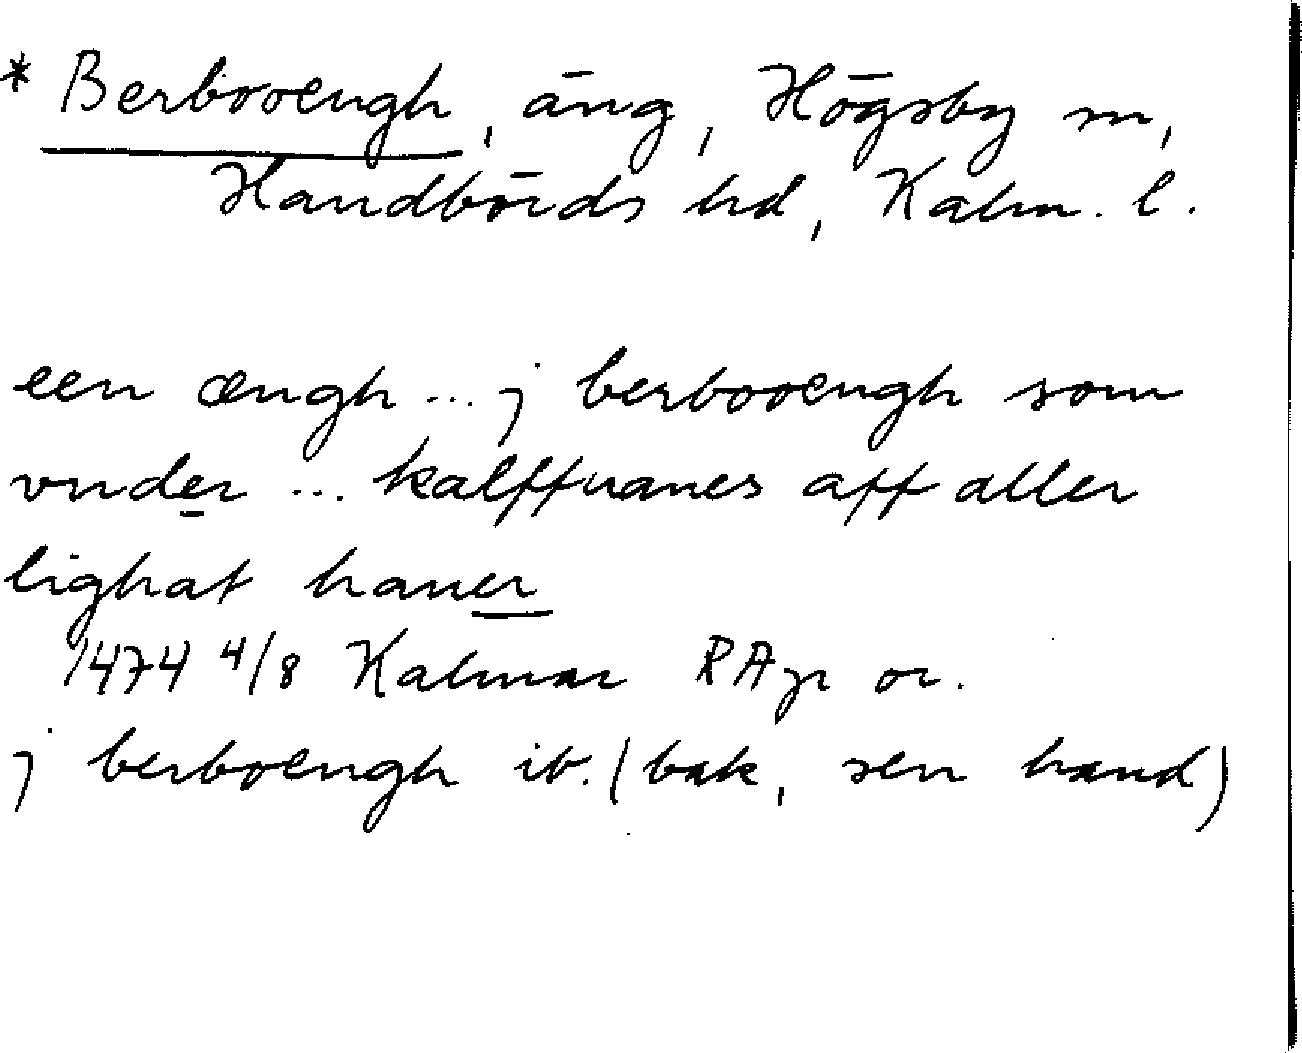 * Berbooengh, äng, Högsby sn,
Handbörds hd, Kalm. l.
een ængh ... j berbooengh som
vnder ... kalffuanes aff aller
lighat hauer
1474 4/8 Kalmar RAp or.
j berboengh ib. (bak, sen hand)